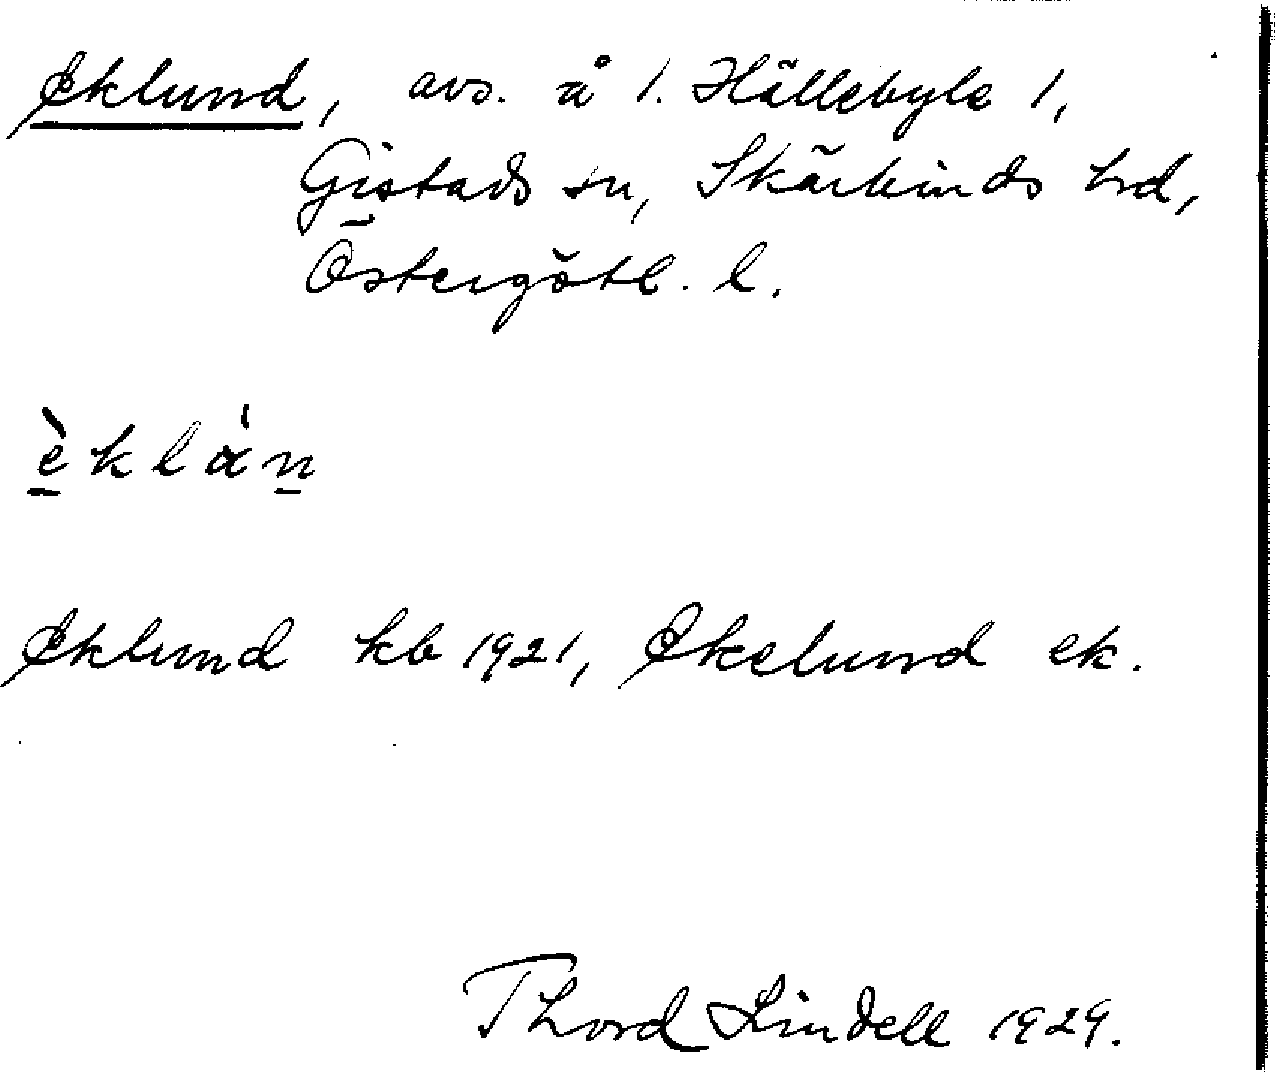 Eklund, avs. å 1. Hällebyle 1,
Gistads sn, Skärkinds hd,
Östergötl. l.
èklán
Eklund kb 1921, Ekelund ek.
Thord Lindell 1929.